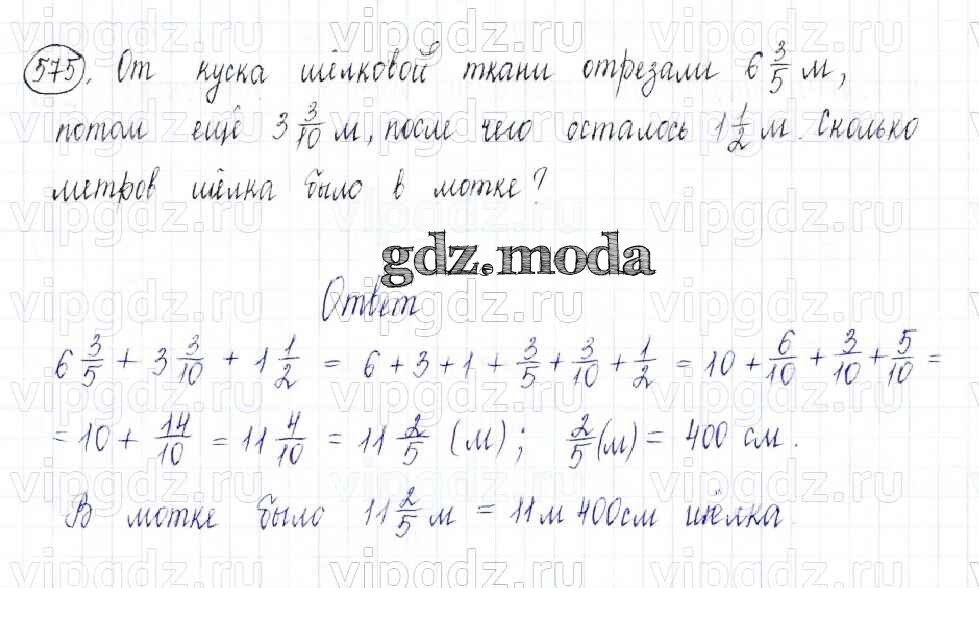 575. От куска шёлковой ткани отрезали 6 3/5 м,
потом ещё 3 3/10 м, после чего осталось 1 1/2 м. Сколько
метров шёлка было в мотке?
gdz.moda
Ответ
6 3/5 + 3 3/10 + 1 1/2 = 6 + 3 + 1 + 3/5 + 3/10 + 1/2 = 10 + 6/10 + 3/10 + 5/10 =
= 10 + 14/10 = 11 4/10 = 11 2/5 (м); 2/5 (м) = 400 см.
В мотке было 11 2/5 м = 11 м 400 см шёлка.